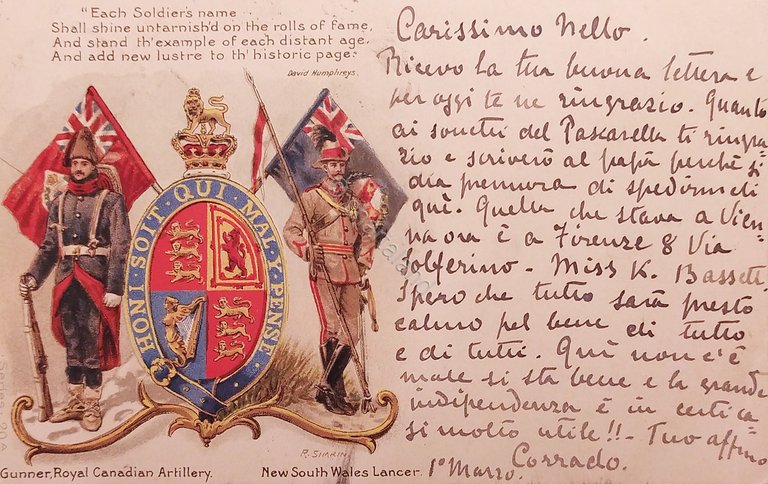 "Each Soldier's name
Shall shine untarnish'd on the rolls of fame,
And stand th' example of each distant age,
And add new lustre to th' historic page:
David Humphreys.
HONI·SOIT·QUI·MAL·Y·PENSE
Series 20A
R. SIMKIN
Gunner, Royal Canadian Artillery.
New South Wales Lancer.
Carissimo Nello.
Ricevo la tua buona lettera e
per oggi te ne ringrazio. Quanto
ai sonetti del Pascarella ti ringra=
zio e scriverò al papà perché si
dia premura di spedirmeli
quì. Quella che stava a Vien=
na ora è a Firenze 8 Via
Solferino - Miss K. Bassett.
Spero che tutto sarà presto
calmo pel bene di tutto
e di tutti. Quì non c'è
male si sta bene e la grande
indipendenza è in certi ca=
si molto utile!! - Tuo affmo
Corrado.
1° Marzo.